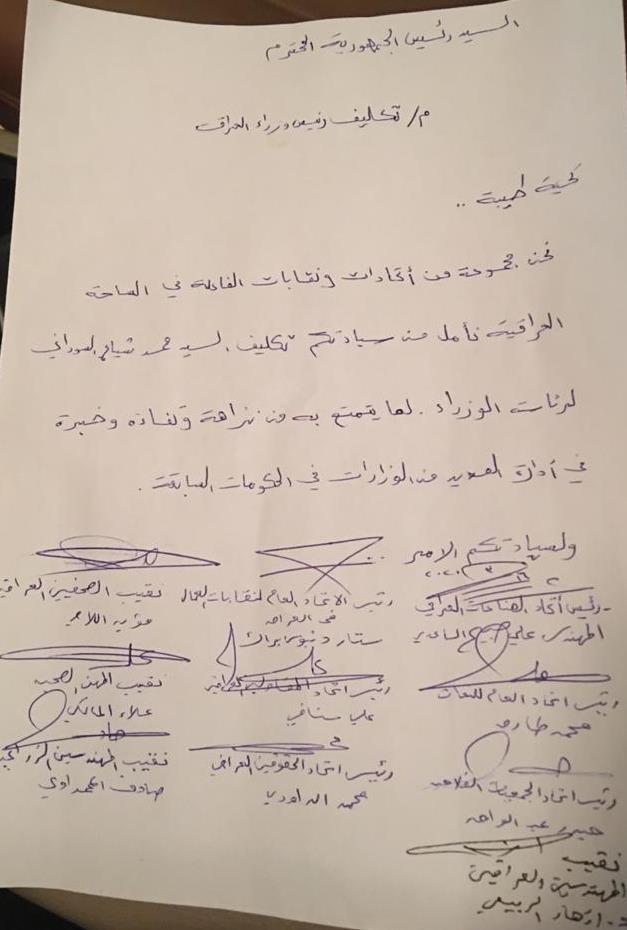 السيد رئيس الجمهورية المحترم
م/ تكليف رئيس وزراء العراق
تحية طيبة ..
نحن مجموعة من أتحادات ونقابات الفاعلة في الساحة
العراقية نأمل من سيادتكم تكليف السيد محمد شياع السوداني
لرئاسة الوزراء . لما يتمتع به من نزاهة وكفاءة وخبرة
في أدارة العديد من الوزارات في الحكومات السابقة .
ولسيادتكم الامر
رئيس أتحاد الصناعات العراقي
المهندس علي صبيح الساعدي
رئيس الاتحاد العام لنقابات العمال
في العراق
ستار دنبوس براك
نقيب الصحفيين العراقيين
مؤيد اللامي
رئيس اتحاد العام
محمد طارق
رئيس اتحاد المقاولين العراقيين
علي سنافي
نقيب المهن الصحية
علاء المالكي
رئيس اتحاد الجمعيات الفلاحية
عبد الواحد
رئيس اتحاد الحقوقين العراقي
محمد الداودي
نقيب المهندسين الزراعيين
صادق المحمداوي
نقيب
المهندسين العراقيين
الربيعي